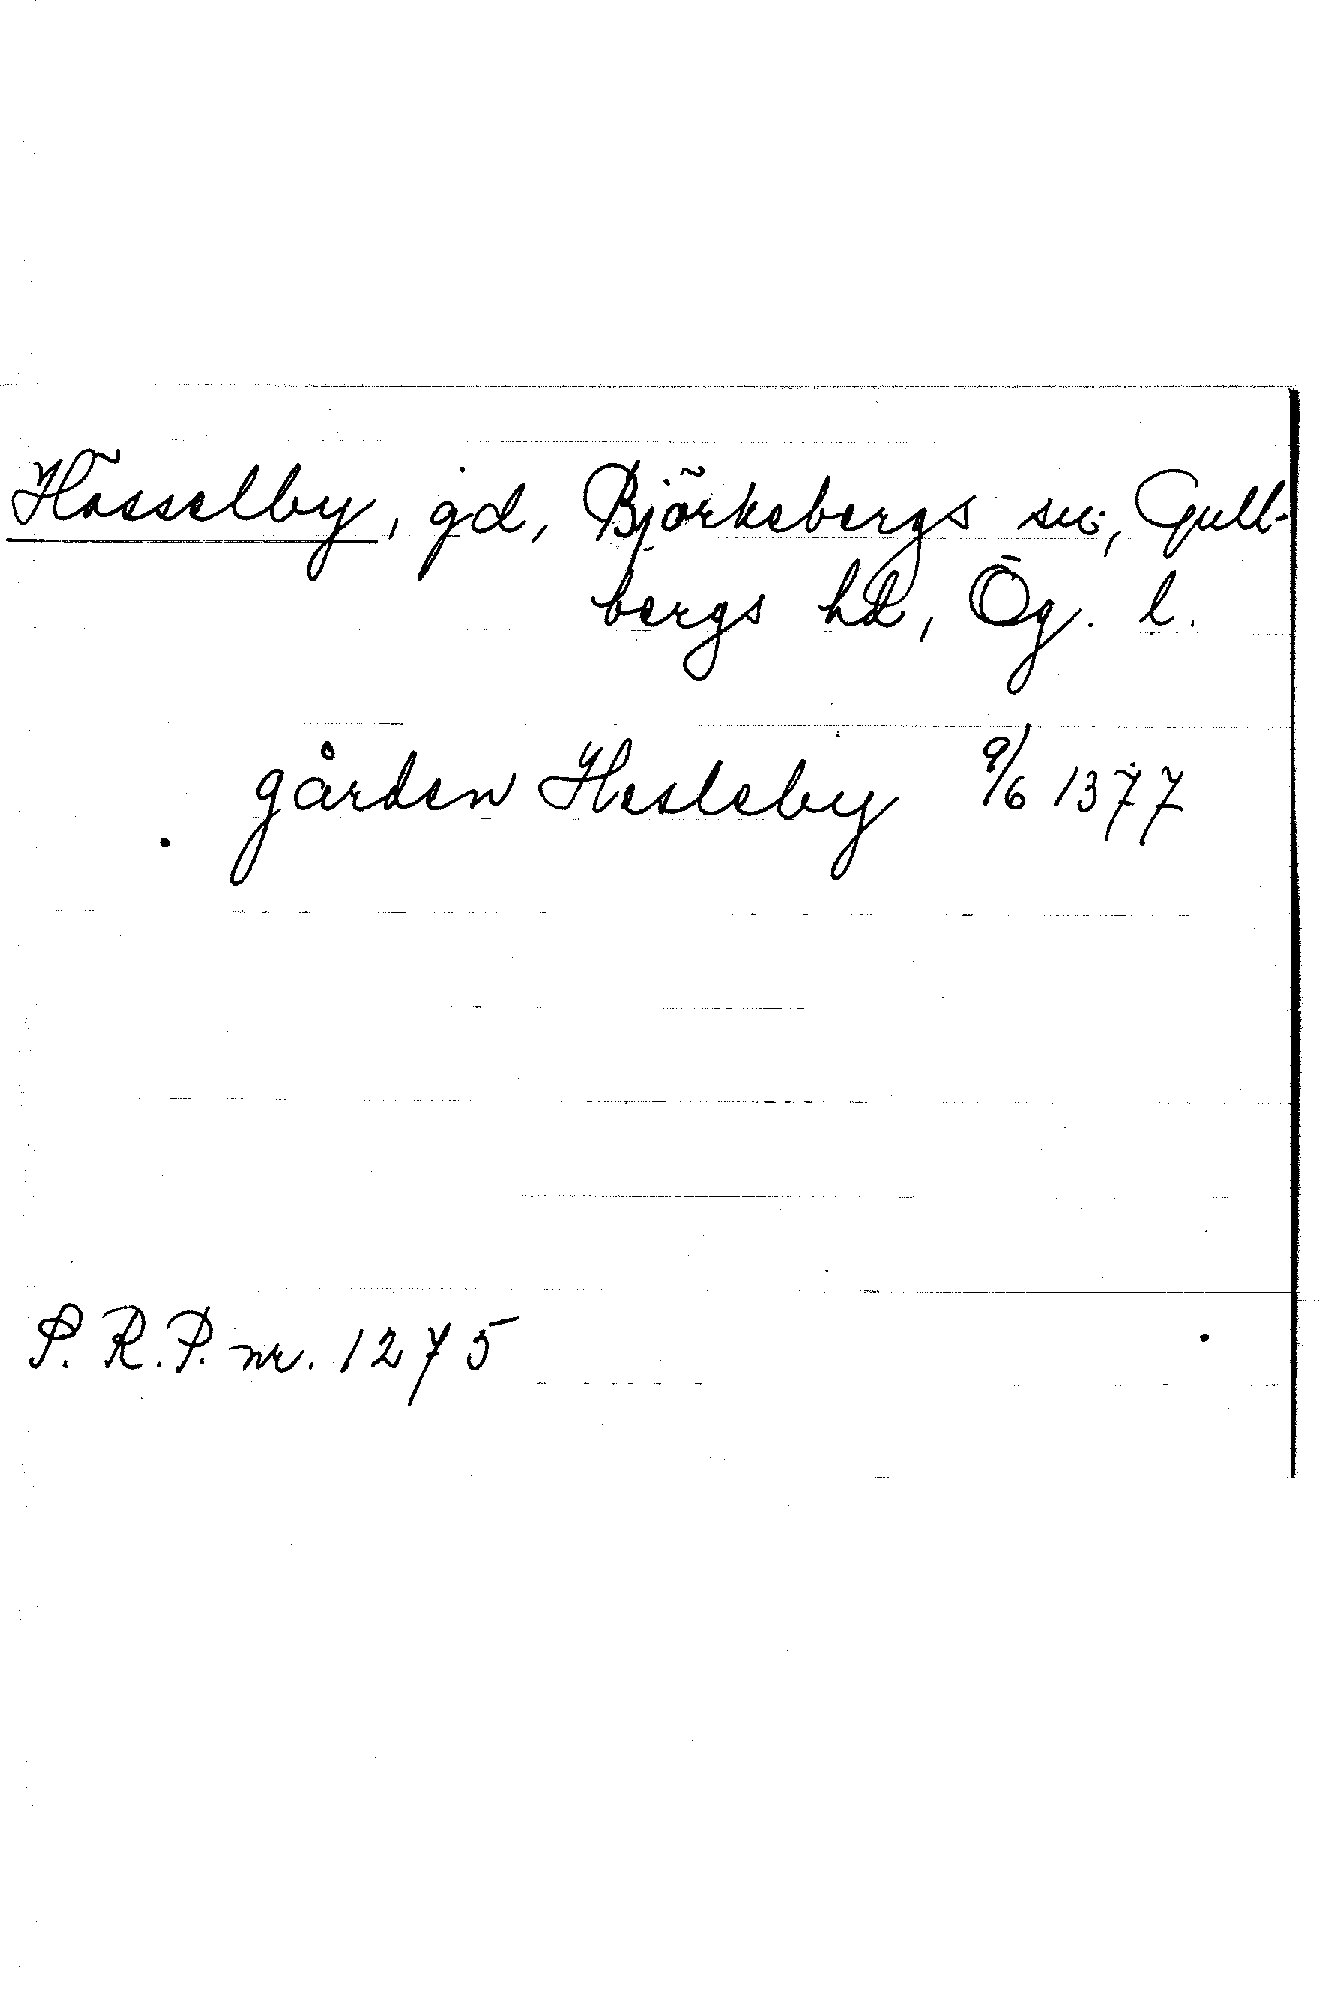 Hässelby, gd, Björkebergs sn, Gull-
bergs hd, Ög. l.
gården Hesleby 9/6 1377
S. R. P. nr. 1275